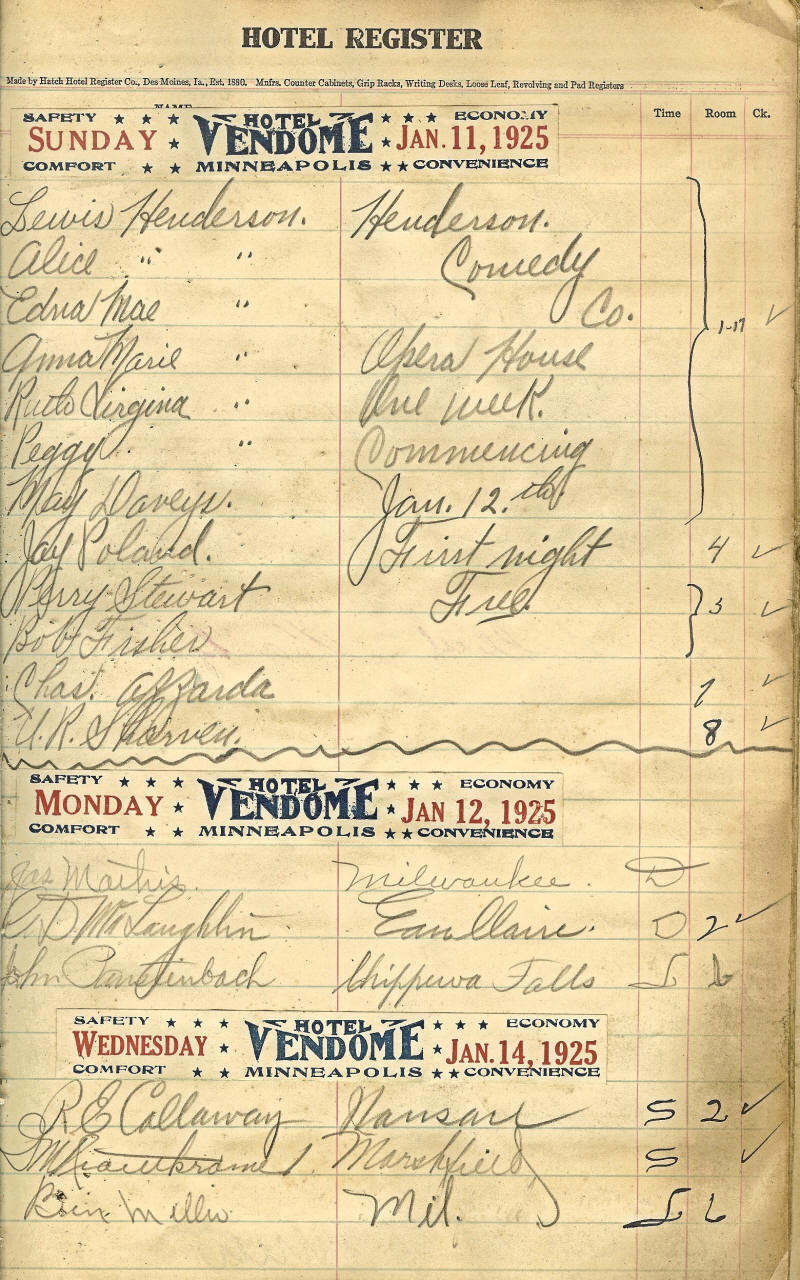 HOTEL REGISTER
Made by Hatch Hotel Register Co., Des Moines, Ia., Est. 1880. Mnfrs. Counter Cabinets, Grip Racks, Writing Desks, Loose Leaf, Revolving and Pad Registers
NAME Time Room Ck.
SAFETY HOTEL ECONOMY
SUNDAY VENDOME JAN. 11, 1925
COMFORT MINNEAPOLIS CONVENIENCE
Lewis Henderson. Henderson.
Alice " " Comedy
Edna Mae " Co.
1-17 ✓
Anna Marie " Opera House
Ruth Virgina " One week.
Peggy " Commencing
May Daveys. Jan. 12.th
Jay Poland. First night 4 ✓
Perry Stewart Free. 3 ✓
Bob Fisher
Chas. ✓
U.R. 8 ✓
SAFETY HOTEL ECONOMY
MONDAY VENDOME JAN 12, 1925
COMFORT MINNEAPOLIS CONVENIENCE
Jas Mathis. Milwaukee. D
McLaughlin Eau Claire. D 2 ✓
John Chippewa Falls L 6
SAFETY HOTEL ECONOMY
WEDNESDAY VENDOME JAN. 14, 1925
COMFORT MINNEAPOLIS CONVENIENCE
R E Callaway S 2 ✓
Marshfield S ✓
Mil. L 6